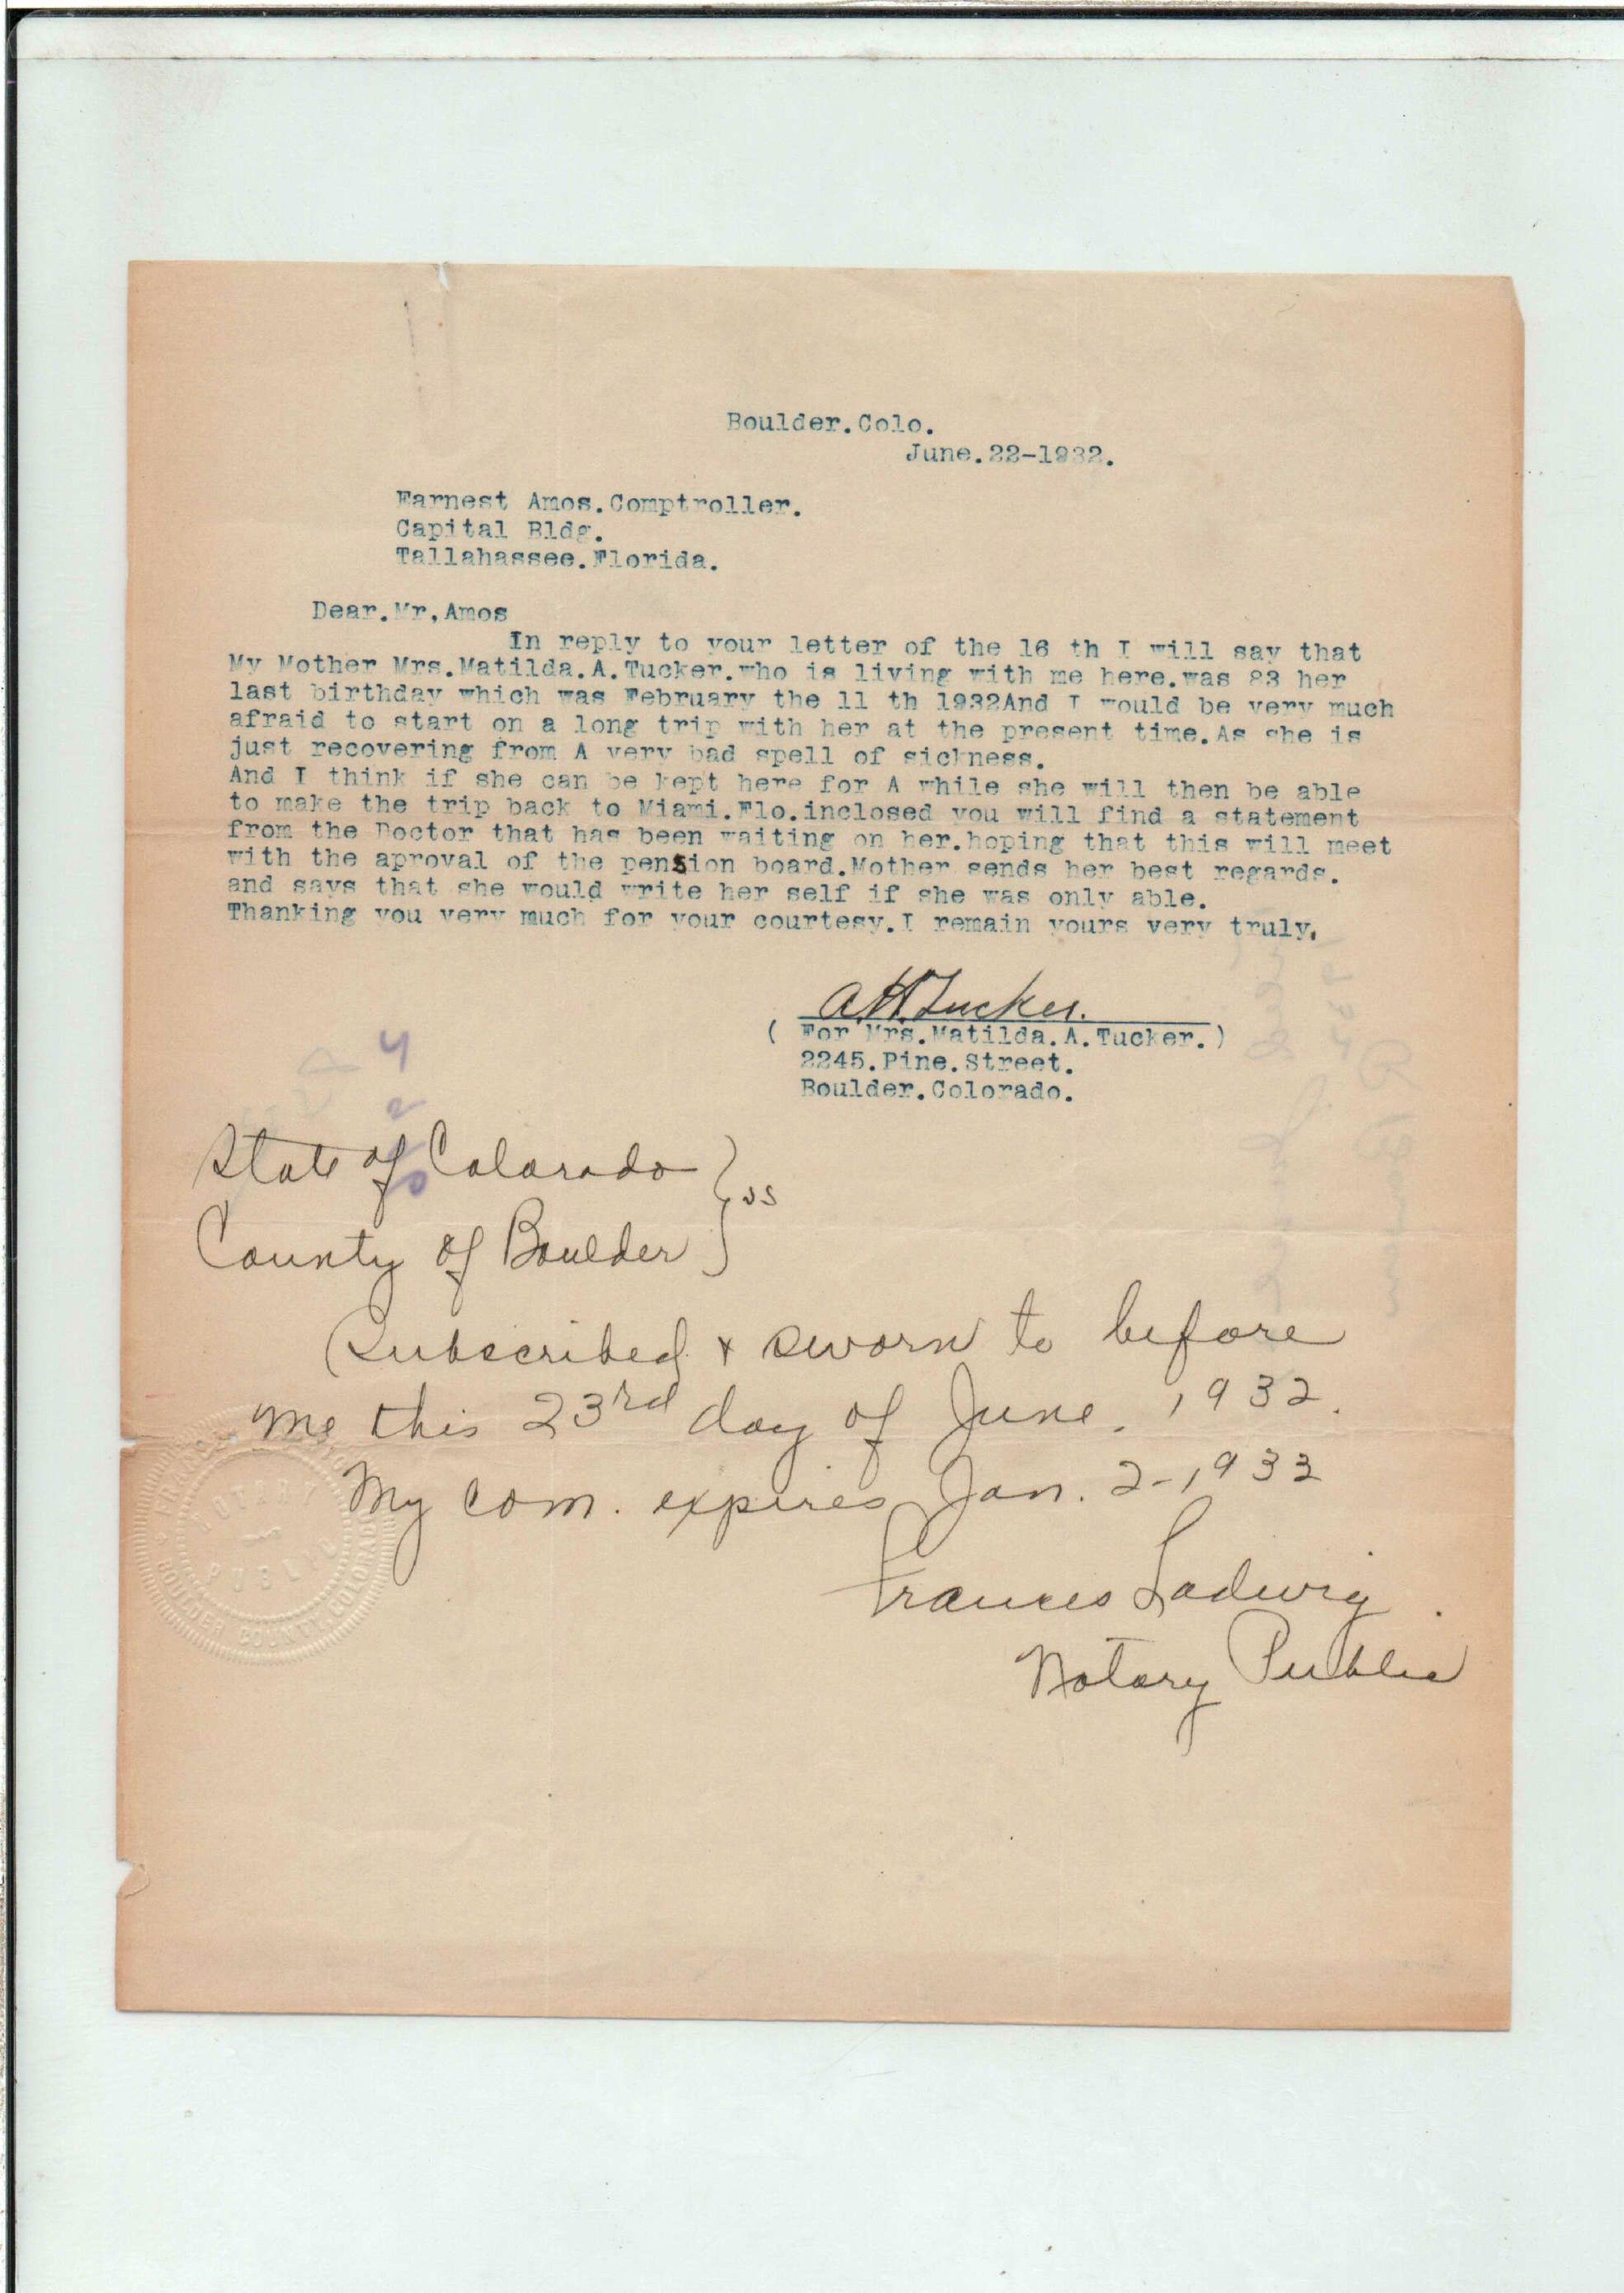 Boulder.Colo.
June.22-1932.
Earnest Amos.Comptroller.
Capital Bldg.
Tallahassee.Florida.
Dear.Mr,Amos
In reply to your letter of the 16 th I will say that
My Mother Mrs.Matilda.A.Tucker.who is living with me here.was 83 her
last birthday which was February the 11 th 1932And I would be very much
afraid to start on a long trip with her at the present time.As she is
just recovering from A very bad spell of sickness.
And I think if she can be kept here for A while she will then be able
to make the trip back to Miami.Flo.inclosed you will find a statement
from the Doctor that has been waiting on her.hoping that this will meet
with the aproval of the pension board.Mother sends her best regards.
and says that she would write her self if she was only able.
Thanking you very much for your courtesy.I remain yours very truly.
A.H.Tucker.
( For Mrs.Matilda.A.Tucker.)
2245.Pine.Street.
Boulder.Colorado.
4
2
State of Colorado } ss
County of Boulder
Subscribed & sworn to before
me this 23rd day of June. 1932.
My com. expires Jan. 2-1933
Frances Ladwig
Notary Public
NOTARY
PUBLIC
BOULDER COUNTY, COLORADO